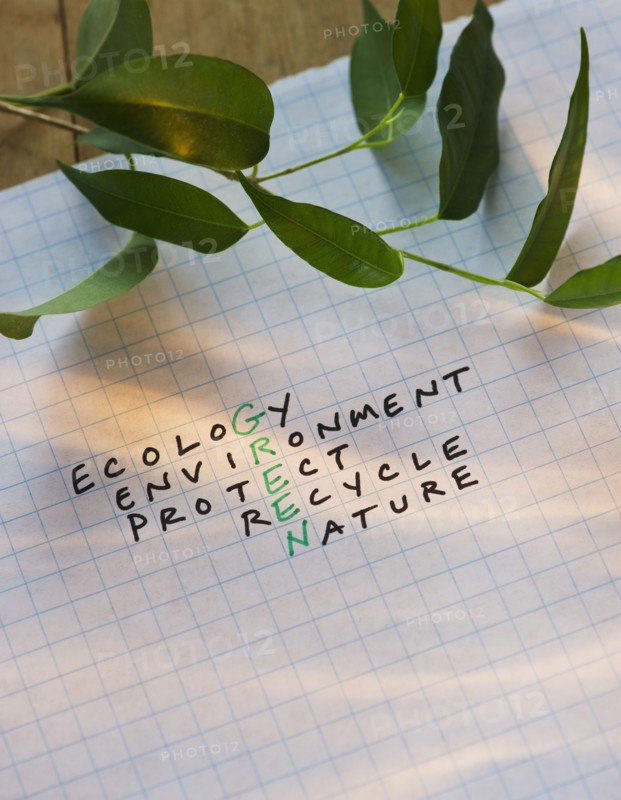 ECOLOGY
ENVIRONMENT
PROTECT
RECYCLE
NATURE
PHOTO12
PHOTO12
PHOTO12
PHOTO12
PHOTO12
PHOTO12
PHOTO12
PHOTO12
PHOTO12
PHOTO12
PHOTO12
PHOTO12
PHOTO12
PHOTO12